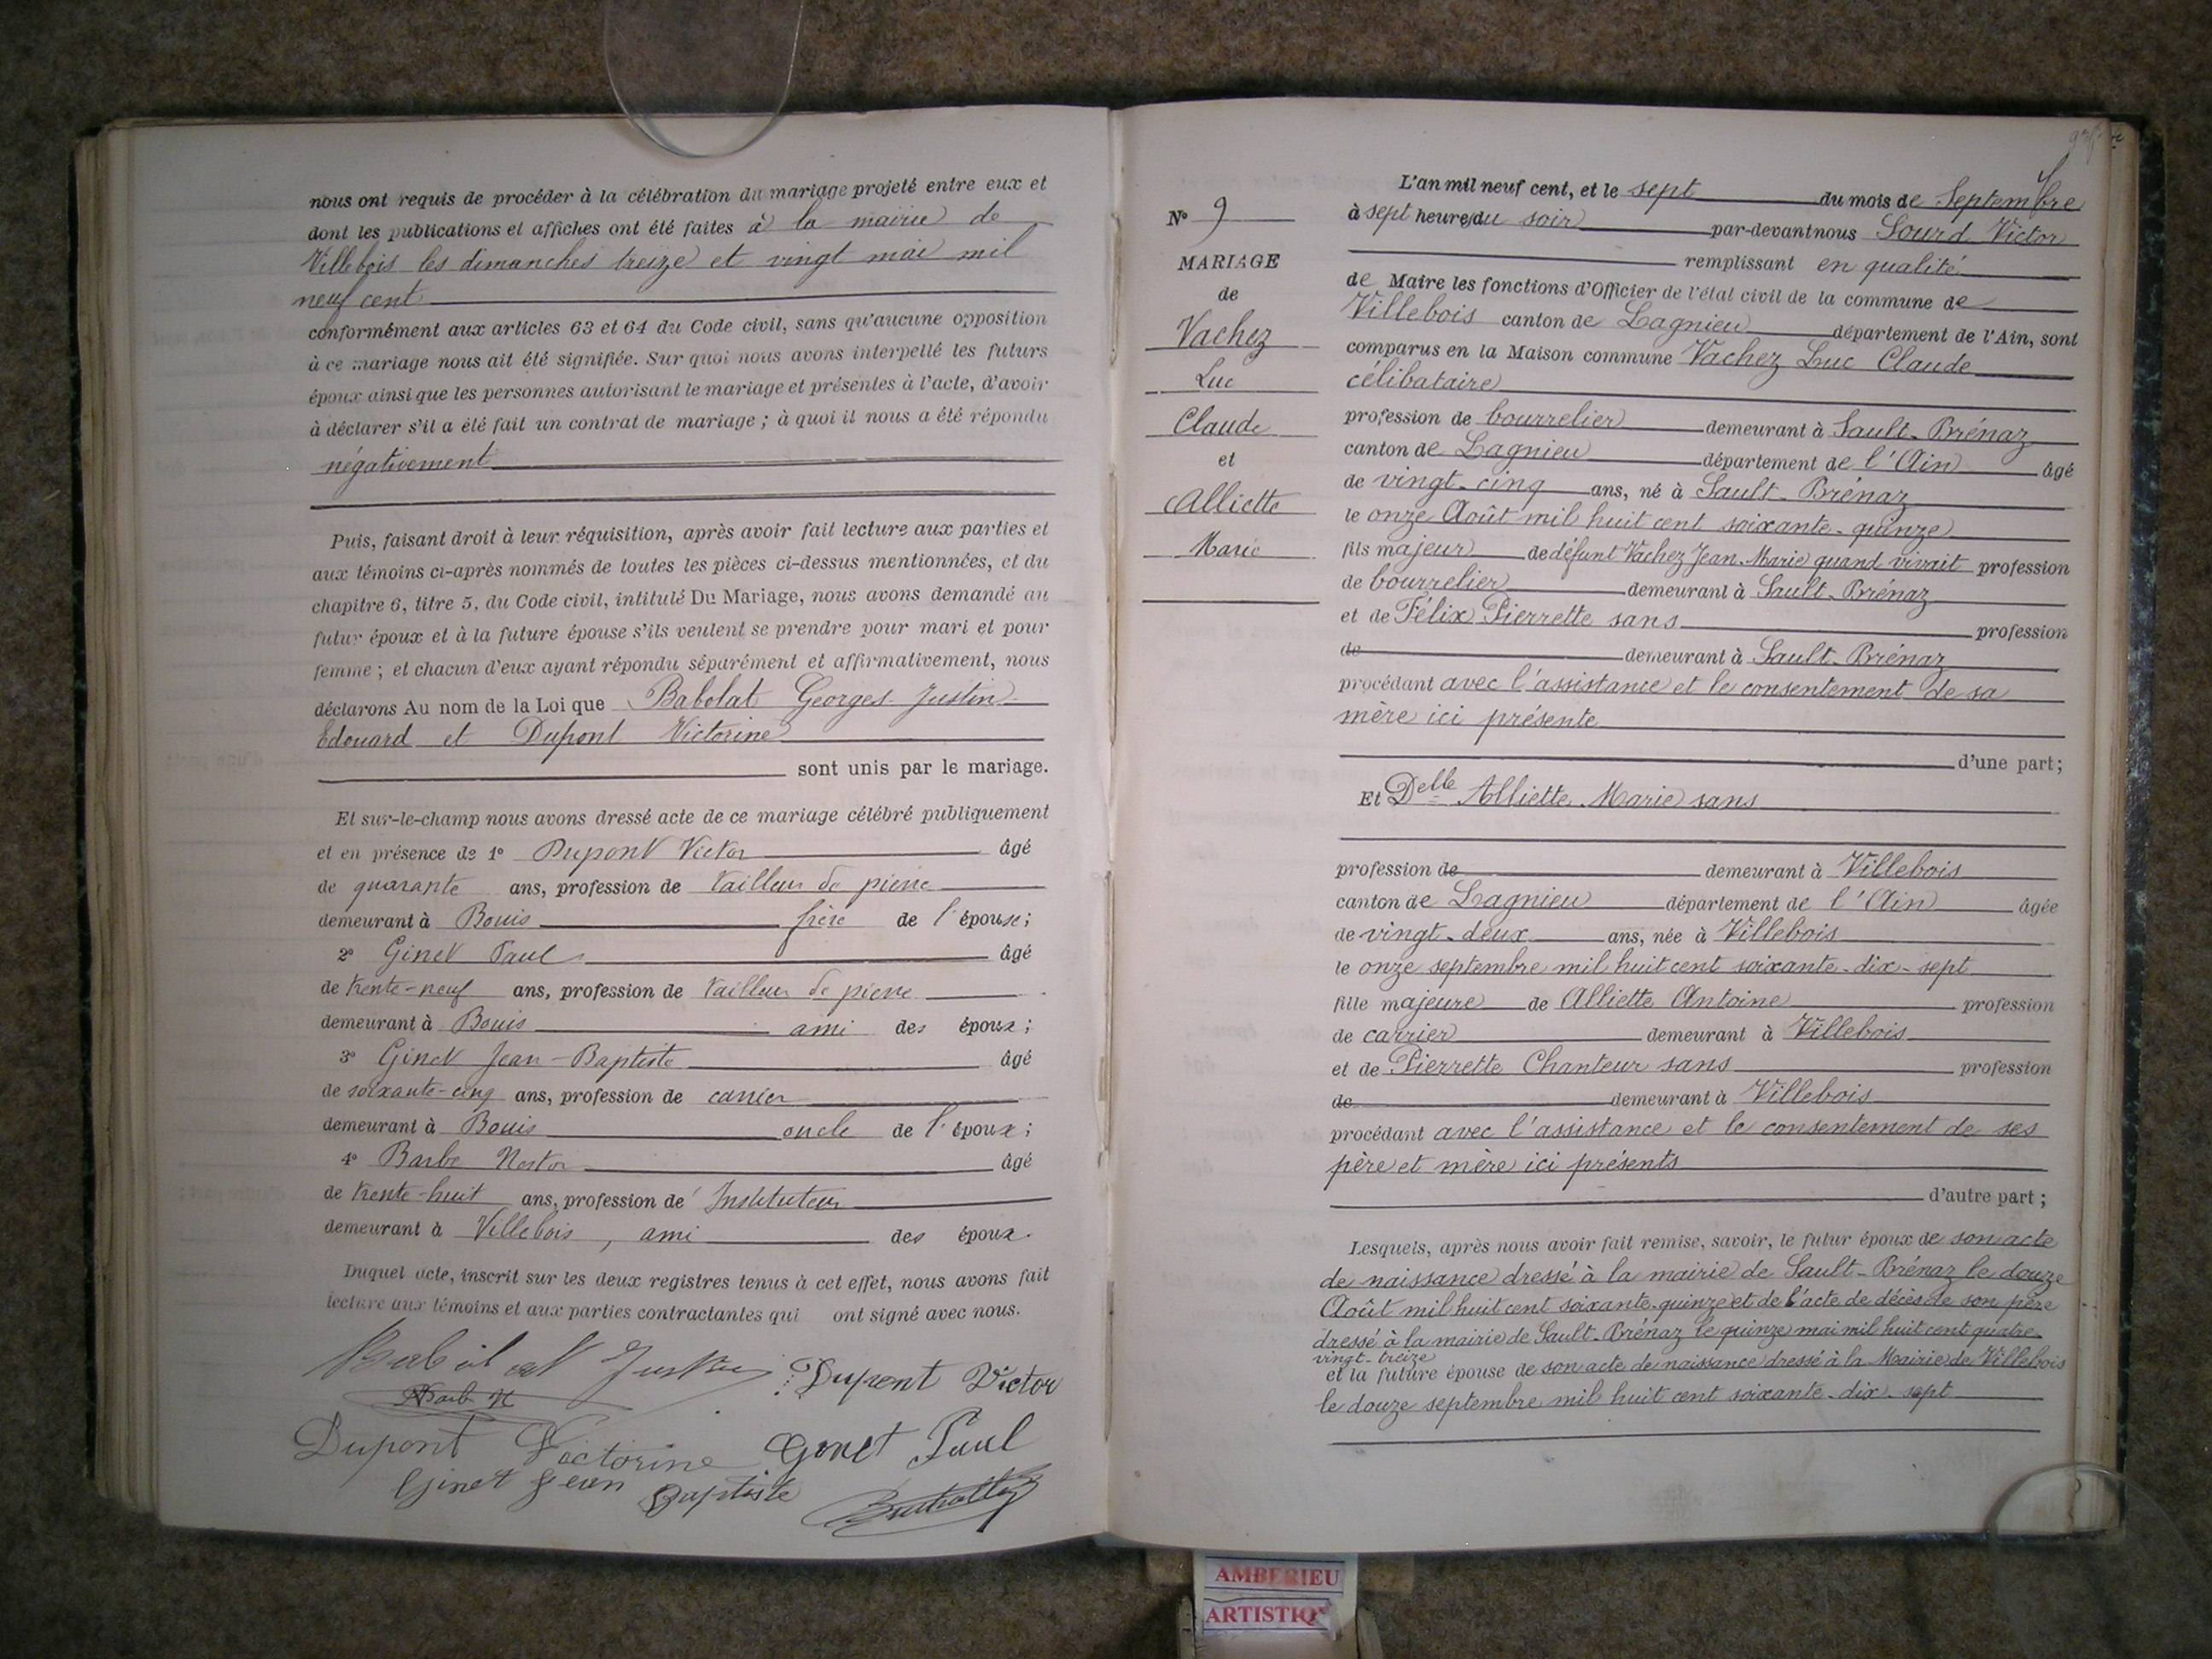 nous ont requis de procéder à la célébration du mariage projeté entre eux et
dont les publications et affiches ont été faites à la mairie de
Villebois les dimanches treize et vingt mai mil
neuf cent
conformément aux articles 63 et 64 du Code civil, sans qu'aucune opposition
à ce mariage nous ait été signifiée. Sur quoi nous avons interpellé les futurs
époux ainsi que les personnes autorisant le mariage et présentes à l'acte, d'avoir
à déclarer s'il a été fait un contrat de mariage ; à quoi il nous a été répondu
négativement
Puis, faisant droit à leur réquisition, après avoir fait lecture aux parties et
aux témoins ci-après nommés de toutes les pièces ci-dessus mentionnées, et du
chapitre 6, titre 5, du Code civil, intitulé Du Mariage, nous avons demandé au
futur époux et à la future épouse s'ils veulent se prendre pour mari et pour
femme ; et chacun d'eux ayant répondu séparément et affirmativement, nous
déclarons Au nom de la Loi que Babolat Georges Justin
Edouard et Dupont Victorine
sont unis par le mariage.
Et sur-le-champ nous avons dressé acte de ce mariage célébré publiquement
et en présence de 1° Dupont Victor âgé
de quarante ans, profession de tailleur de pierre
demeurant à Bouis frère de l'épouse ;
2° Ginet Paul âgé
de trente-neuf ans, profession de tailleur de pierre
demeurant à Bouis ami des époux ;
3° Ginet Jean-Baptiste âgé
de soixante-cinq ans, profession de carrier
demeurant à Bouis oncle de l'époux ;
4° Barbe Nestor âgé
de trente-huit ans, profession de Instituteur
demeurant à Villebois, ami des époux.
Duquel acte, inscrit sur les deux registres tenus à cet effet, nous avons fait
lecture aux témoins et aux parties contractantes qui ont signé avec nous.
Babolat Justin Dupont Victor
Barbe N
Dupont Victorine Ginet Paul
Ginet Jean Baptiste
N° 9
MARIAGE
de
Vachez
Luc
Claude
et
Alliette
Marie
L'an mil neuf cent, et le sept du mois de Septembre
à sept heures du soir par-devant nous Sourd Victor
remplissant en qualité
de Maire les fonctions d'Officier de l'état civil de la commune de
Villebois canton de Lagnieu département de l'Ain, sont
comparus en la Maison commune Vachez Luc Claude
célibataire
profession de bourrelier demeurant à Sault-Brénaz
canton de Lagnieu département de l'Ain âgé
de vingt-cinq ans, né à Sault-Brénaz
le onze Août mil huit cent soixante-quinze
fils majeur de défunt Vachez Jean-Marie quand vivait profession
de bourrelier demeurant à Sault-Brénaz
et de Félix Pierrette sans profession
de demeurant à Sault-Brénaz
procédant avec l'assistance et le consentement de sa
mère ici présente
d'une part ;
Et Delle Alliette Marie sans
profession de demeurant à Villebois
canton de Lagnieu département de l'Ain âgée
de vingt-deux ans, née à Villebois
le onze septembre mil huit cent soixante-dix-sept
fille majeure de Alliette Antoine profession
de carrier demeurant à Villebois
et de Pierrette Chanteur sans profession
de demeurant à Villebois
procédant avec l'assistance et le consentement de ses
père et mère ici présents
d'autre part ;
Lesquels, après nous avoir fait remise, savoir, le futur époux de son acte
de naissance dressé à la mairie de Sault-Brénaz le douze
Août mil huit cent soixante-quinze et de l'acte de décès de son père
dressé à la mairie de Sault-Brénaz le quinze mai mil huit cent quatre-
vingt-treize
et la future épouse de son acte de naissance dressé à la Mairie de Villebois
le douze septembre mil huit cent soixante-dix-sept
AMBERIEU
ARTISTIQ